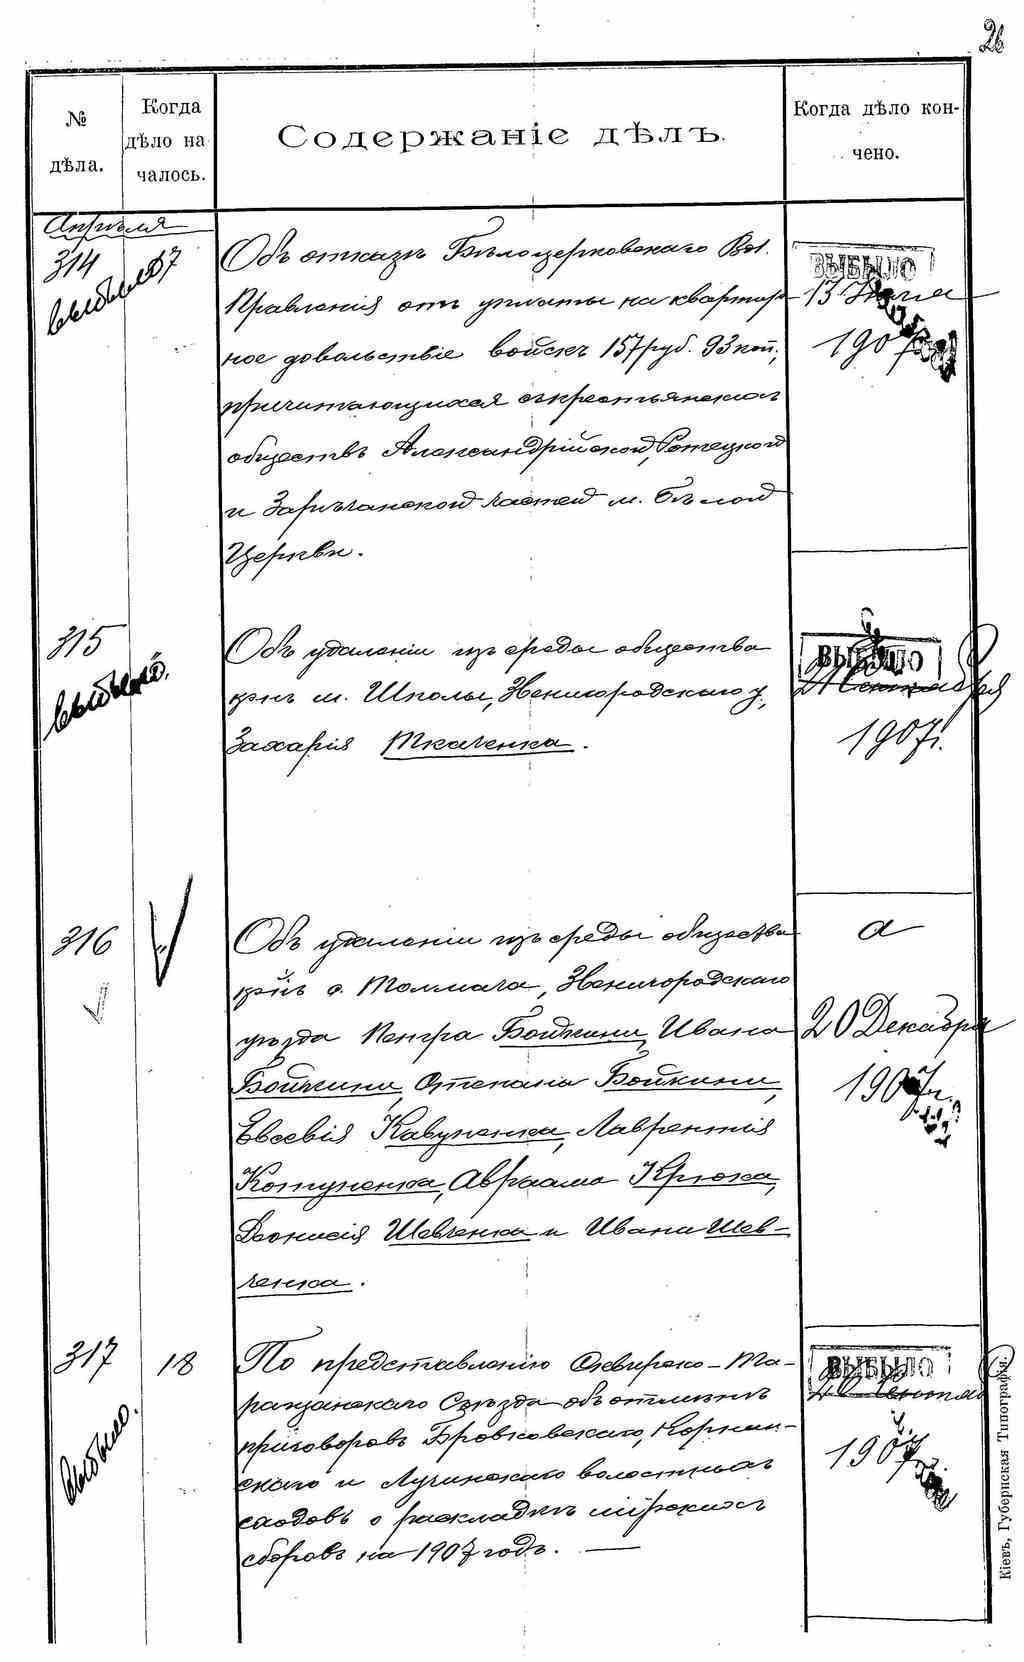 26
№ дѣла.
Когда дѣло началось.
Содержаніе дѣлъ.
Когда дѣло кончено.
Апрѣля
314
17
выбыло
Объ отказѣ Бѣлоцерковскаго Вол.
Правленія отъ уплаты на квартир-
ное довольствіе войскъ 157 руб. 93 коп.,
причитающихся съ крестьянскихъ
обществъ Александрійской, Ротецкой
и Зарѣчанской частей м. Бѣлой
Церкви.
ВЫБЫЛО
13
1907
315
выбыло.
Объ удаленіи изъ среды общества
кр-нъ м. Шполы, Звенигородскаго у.,
Захарія Ткаченка.
ВЫБЫЛО
21 Сентября
1907г.
316
Объ удаленіи изъ среды общества
кр-нъ с. Толмача, Звенигородскаго
уѣзда Петра Бойкини, Ивана
Бойкини, Степана Бойкини,
Евсевія Кавуненка, Лаврентія
Котуненка, Авраама Крюка,
Діонисія Шевченка и Ивана Шев-
ченка.
а
20 Декабря
1907г.
317
18
выбыло.
По представленію Сквирско-Та-
ращанскаго Съѣзда объ отмѣнѣ
приговоровъ Бровковскаго, Корнин-
скаго и Лучинскаго волостныхъ
сходовъ о раскладкѣ мірскихъ
сборовъ на 1907 годъ. —
ВЫБЫЛО
1907
Кіевъ, Губернская Типографія.